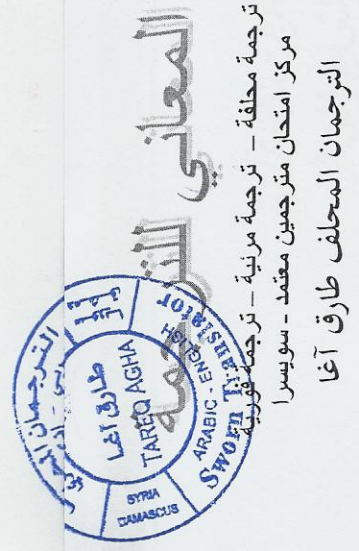 المعاني للترجمة
ترجمة محلفة - ترجمة مرئية - ترجمة فورية
مركز امتحان مترجمين معتمد - سويسرا
الترجمان المحلف طارق آغا
الترجمان
طارق آغا
TAREQ AGHA
ARABIC - ENGLISH
Sworn Translator
SYRIA
DAMASCUS